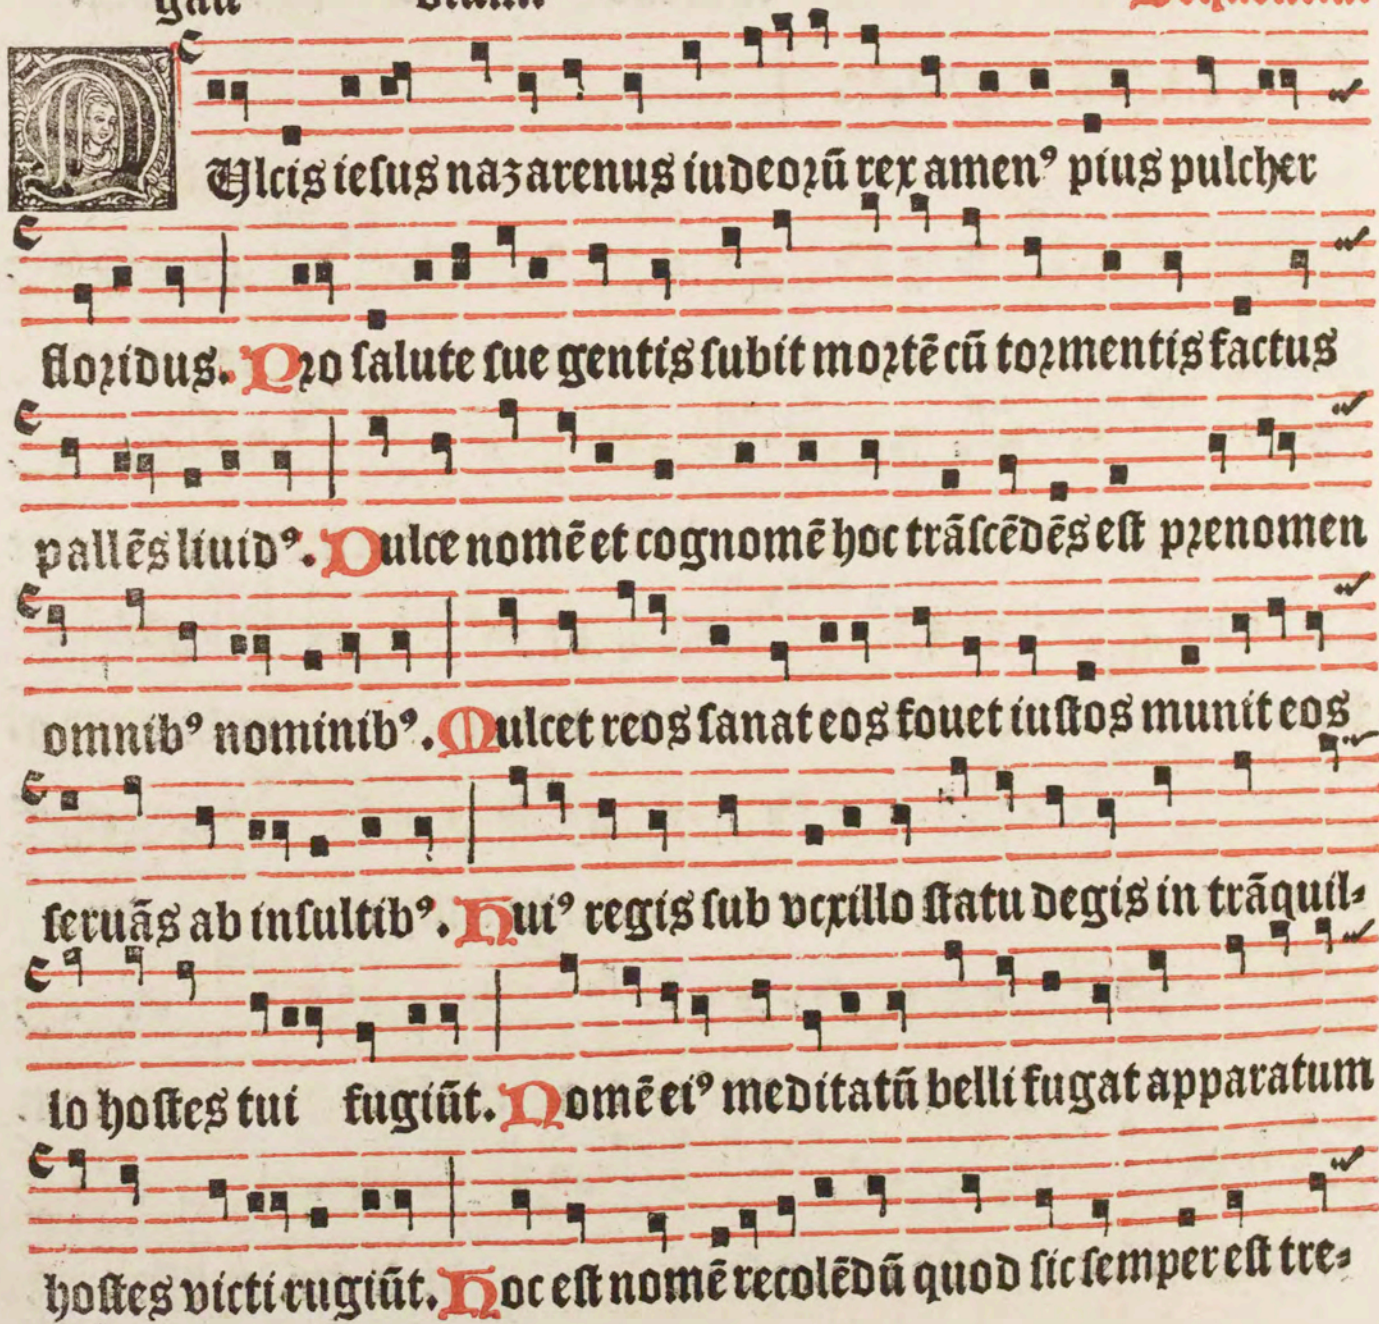 DUlcis iesus nazarenus iudeoꝝū rex amenꝰ pius pulcher
floridus. Pro salute sue gentis subit mortē cū tormentis factus
pallēs liuidꝰ. Dulce nomē et cognomē hoc trāscēdēs est prenomen
omnibꝰ nominibꝰ. Mulcet reos sanat eos fouet iustos munit eos
seruās ab insultibꝰ. Huiꝰ regis sub vexillo statu degis in trāquil-
lo hostes tui fugiūt. Nomē eiꝰ meditatū belli fugat apparatum
hostes victi rugiūt. Hoc est nomē recolēdū quod sic semper est tre-